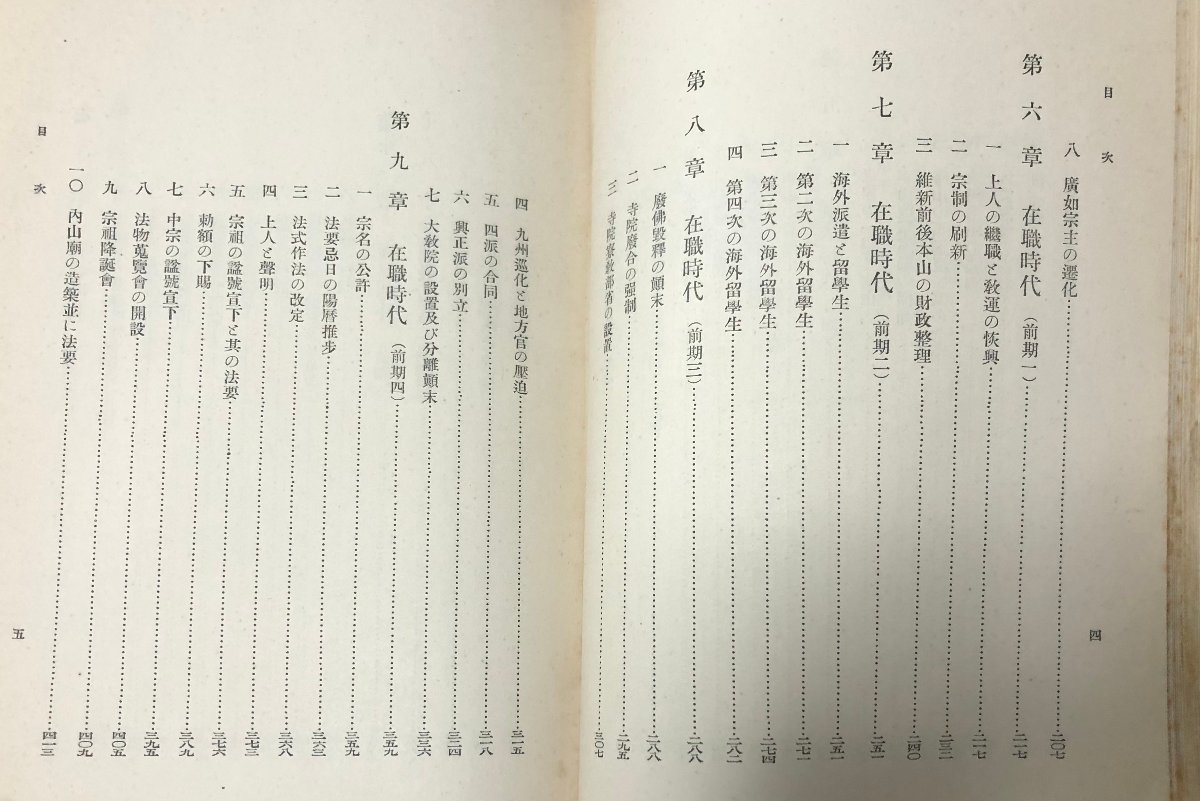 目次
八 廣如宗主の遷化……二〇七
第六章 在職時代（前期一）……二一七
一 上人の繼職と敎運の恢興……二一七
二 宗制の刷新……二三二
三 維新前後本山の財政整理……二四〇
第七章 在職時代（前期二）……二五一
一 海外派遣と留學生……二五一
二 第二次の海外留學生……二七一
三 第三次の海外留學生……二七四
四 第四次の海外留學生……二八二
第八章 在職時代（前期三）……二八八
一 廢佛毀釋の顚末……二八八
二 寺院廢合の强制……二九五
三 寺院寮敎部省の設置……三〇七
四
目次
四 九州巡化と地方官の壓迫……三一五
五 四派の合同……三一八
六 興正派の別立……三二四
七 大敎院の設置及び分離顚末……三三六
第九章 在職時代（前期四）……三五九
一 宗名の公許……三五九
二 法要忌日の陽曆推步……三六三
三 法式作法の改定……三六八
四 上人と聲明……三七三
五 宗祖の諡號宣下と其の法要……三七六
六 勅額の下賜……三八九
七 中宗の諡號宣下……三九五
八 法物蒐覽會の開設……四〇五
九 宗祖降誕會……四〇九
一〇 內山廟の造築並に法要……四一三
五